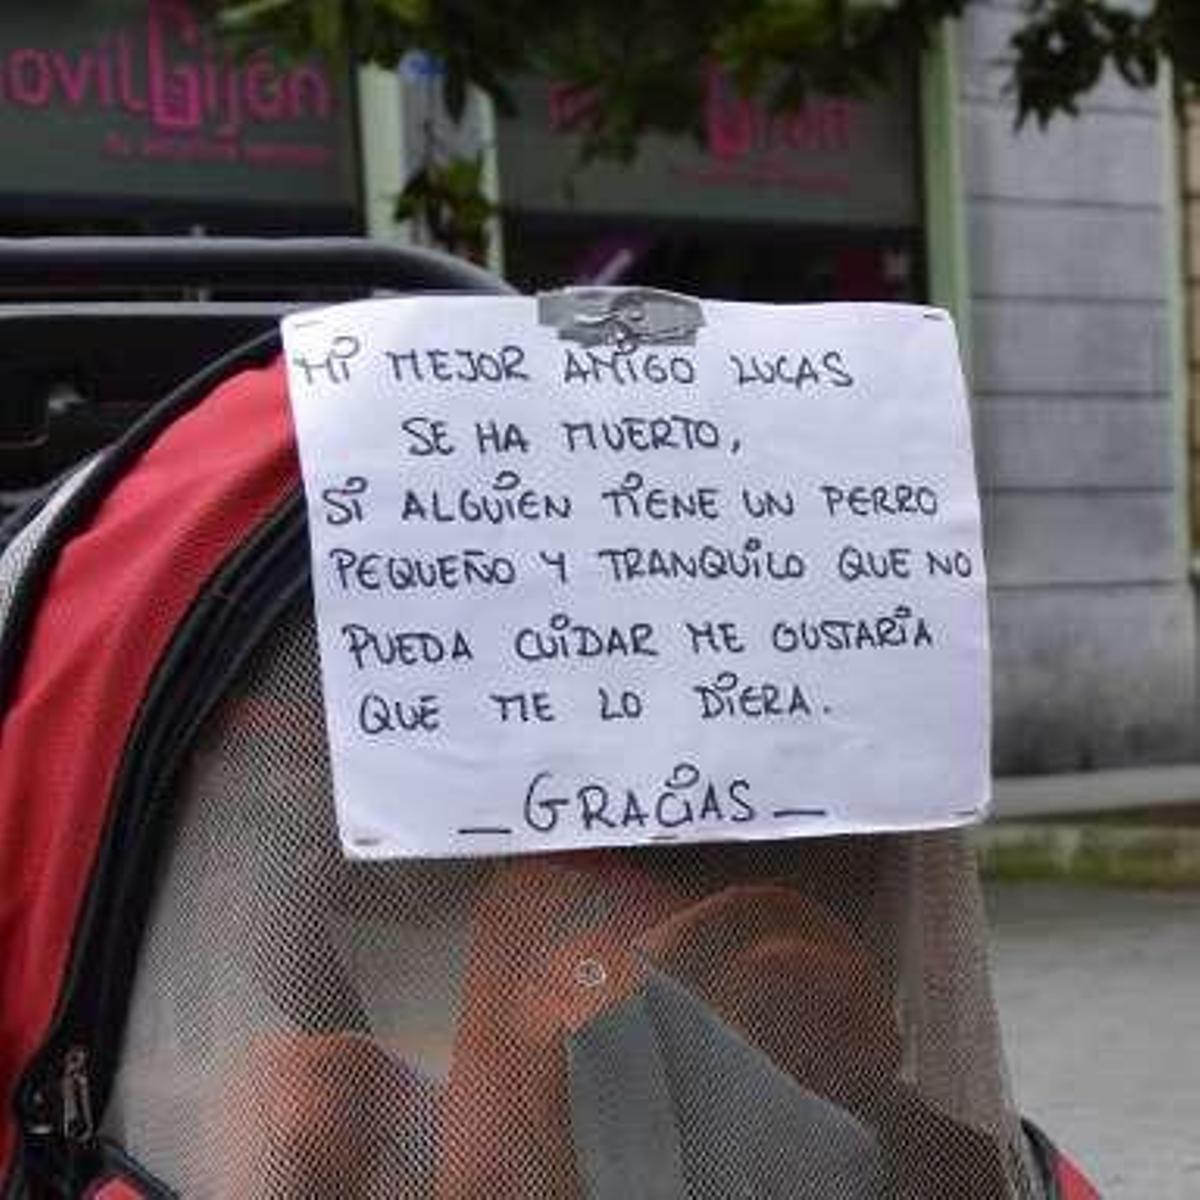 ovilGijón
MI MEJOR AMIGO LUCAS
SE HA MUERTO,
SI ALGUIEN TIENE UN PERRO
PEQUEÑO Y TRANQUILO QUE NO
PUEDA CUIDAR ME GUSTARIA
QUE ME LO DIERA.
_GRACIAS_